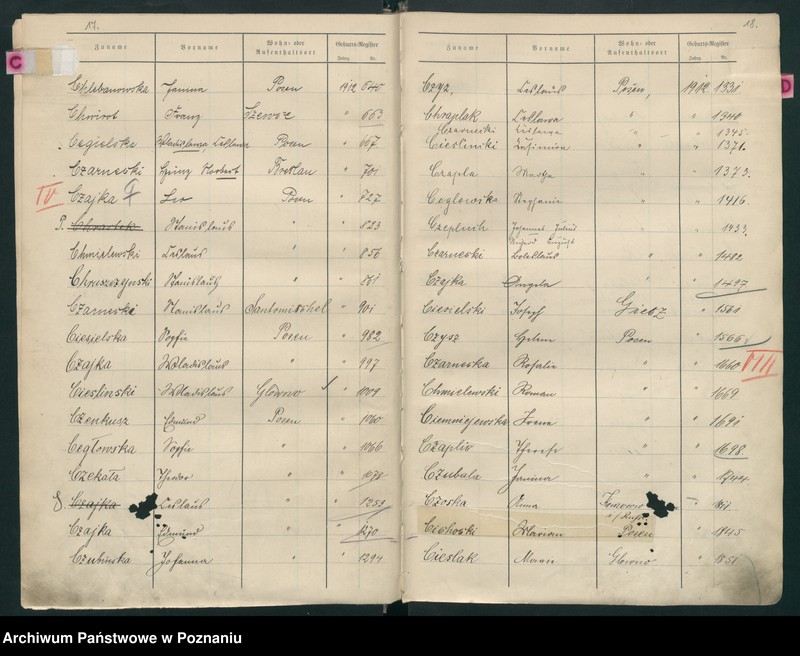 17.
Zuname Vorname Wohn- oder Aufenthaltsort Geburts-Register
Jahrg. Nr.
C
Chlebanowska Janina Posen 1912 640
Chwirot Franz Szewce " 663
Cegielska Wladislawa, Posen " 667
Czarneski Heinz Norbert " 701
IV Czajka Leo Posen " 727
P. Stanislaus " " 823
Chmielewski Ceslaus " " 856
Chruszczynski Stanislaus " "
Czarneski Stanislaus Santomischel " 901
Ciesielska Sophie Posen " 982
Czajka Wladislaus " " 997
Cieslinski Wladislaus Glowno " 1009
Czenkusz Edmund Posen " 1060
Cegłowska Sophie " " 1066
Czekała Theodor " " 1078
Czajka Ceslaus " " 1259
Czajka Edmund " " 1270
Czubinska Johanna " " 1294
18.
Zuname Vorname Wohn- oder Aufenthaltsort Geburts-Register
Jahrg. Nr.
D
Czyz, Ceslaus Posen, 1912 1331
Chraplak " " 1340
Czarnecki " 1345.
Ciesliniki Kasimira " " 1371.
Czapla Martha " " 1373.
Ceglowska Stephanie " " 1416.
Czeplnik Johannes Julius " " 1433.
Richard August
Czarneski Boleslaus " " 1482
Czajka Angela " " 1497
Ciesielski Joseph " 1561
Czysz Helene Posen " 1566
Czarneska Rosalie " " 1660 VIII
Chmielewski Roman " " 1669
Ciemniejewska Irene " " 1691
Czapliv Therese " " 1698
Czubala Janina " " 1744
Czoska Anna
Cichoski Marian Posen " 1845
Cieslak Maria Glowno " 1851
Archiwum Państwowe w Poznaniu